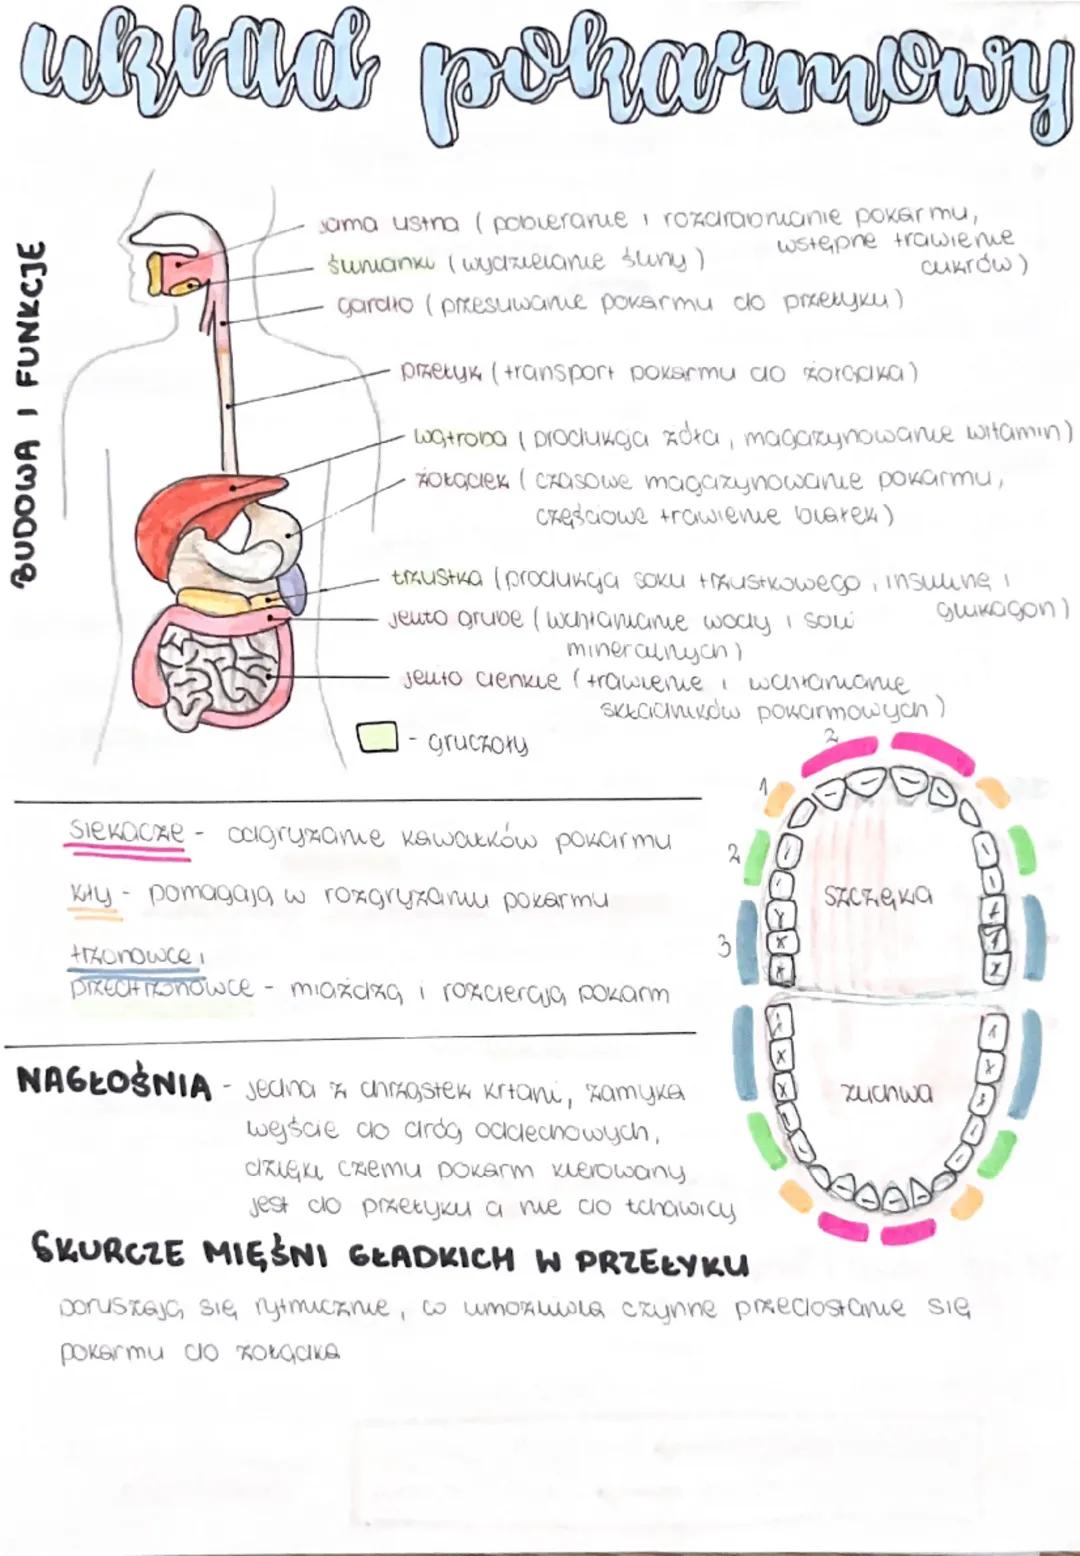 układ pokarmowy
BUDOWA I FUNKCJE
jama ustna (pobieranie i rozdrabnianie pokarmu,
wstępne trawienie
cukrów)
ślinianki (wydzielanie śliny)
gardło (przesuwanie pokarmu do przełyku)
przełyk (transport pokarmu do żołądka)
wątroba (produkcja żółci, magazynowanie witamin)
żołądek (czasowe magazynowanie pokarmu,
częściowe trawienie białek)
trzustka (produkcja soku trzustkowego, insulinę i
glukagon)
jelito grube (wchłanianie wody i soli
mineralnych)
jelito cienkie (trawienie i wchłanianie
składników pokarmowych)
- gruczoły
siekacze - odgryzanie kawałków pokarmu
kły - pomagają w rozgryzaniu pokarmu
trzonowce i
przedtrzonowce - miażdżą i rozcierają pokarm
2
1
2
3
szczęka
żuchwa
NAGŁOŚNIA - jedna z chrząstek krtani, zamyka
wejście do dróg oddechowych,
dzięki czemu pokarm kierowany
jest do przełyku a nie do tchawicy
SKURCZE MIĘŚNI GŁADKICH W PRZEŁYKU
poruszają się rytmicznie, co umożliwia czynne przedostanie się
pokarmu do żołądka